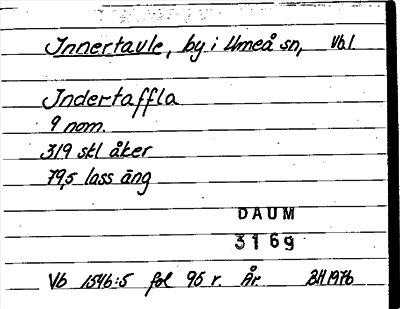 Innertavle, by i Umeå sn, Vbl
Indertaffla
9 nom.
319 skl åker
79,5 lass äng
DAUM
3169
Vb 1546:5 fol 95 r. År. BH 1976